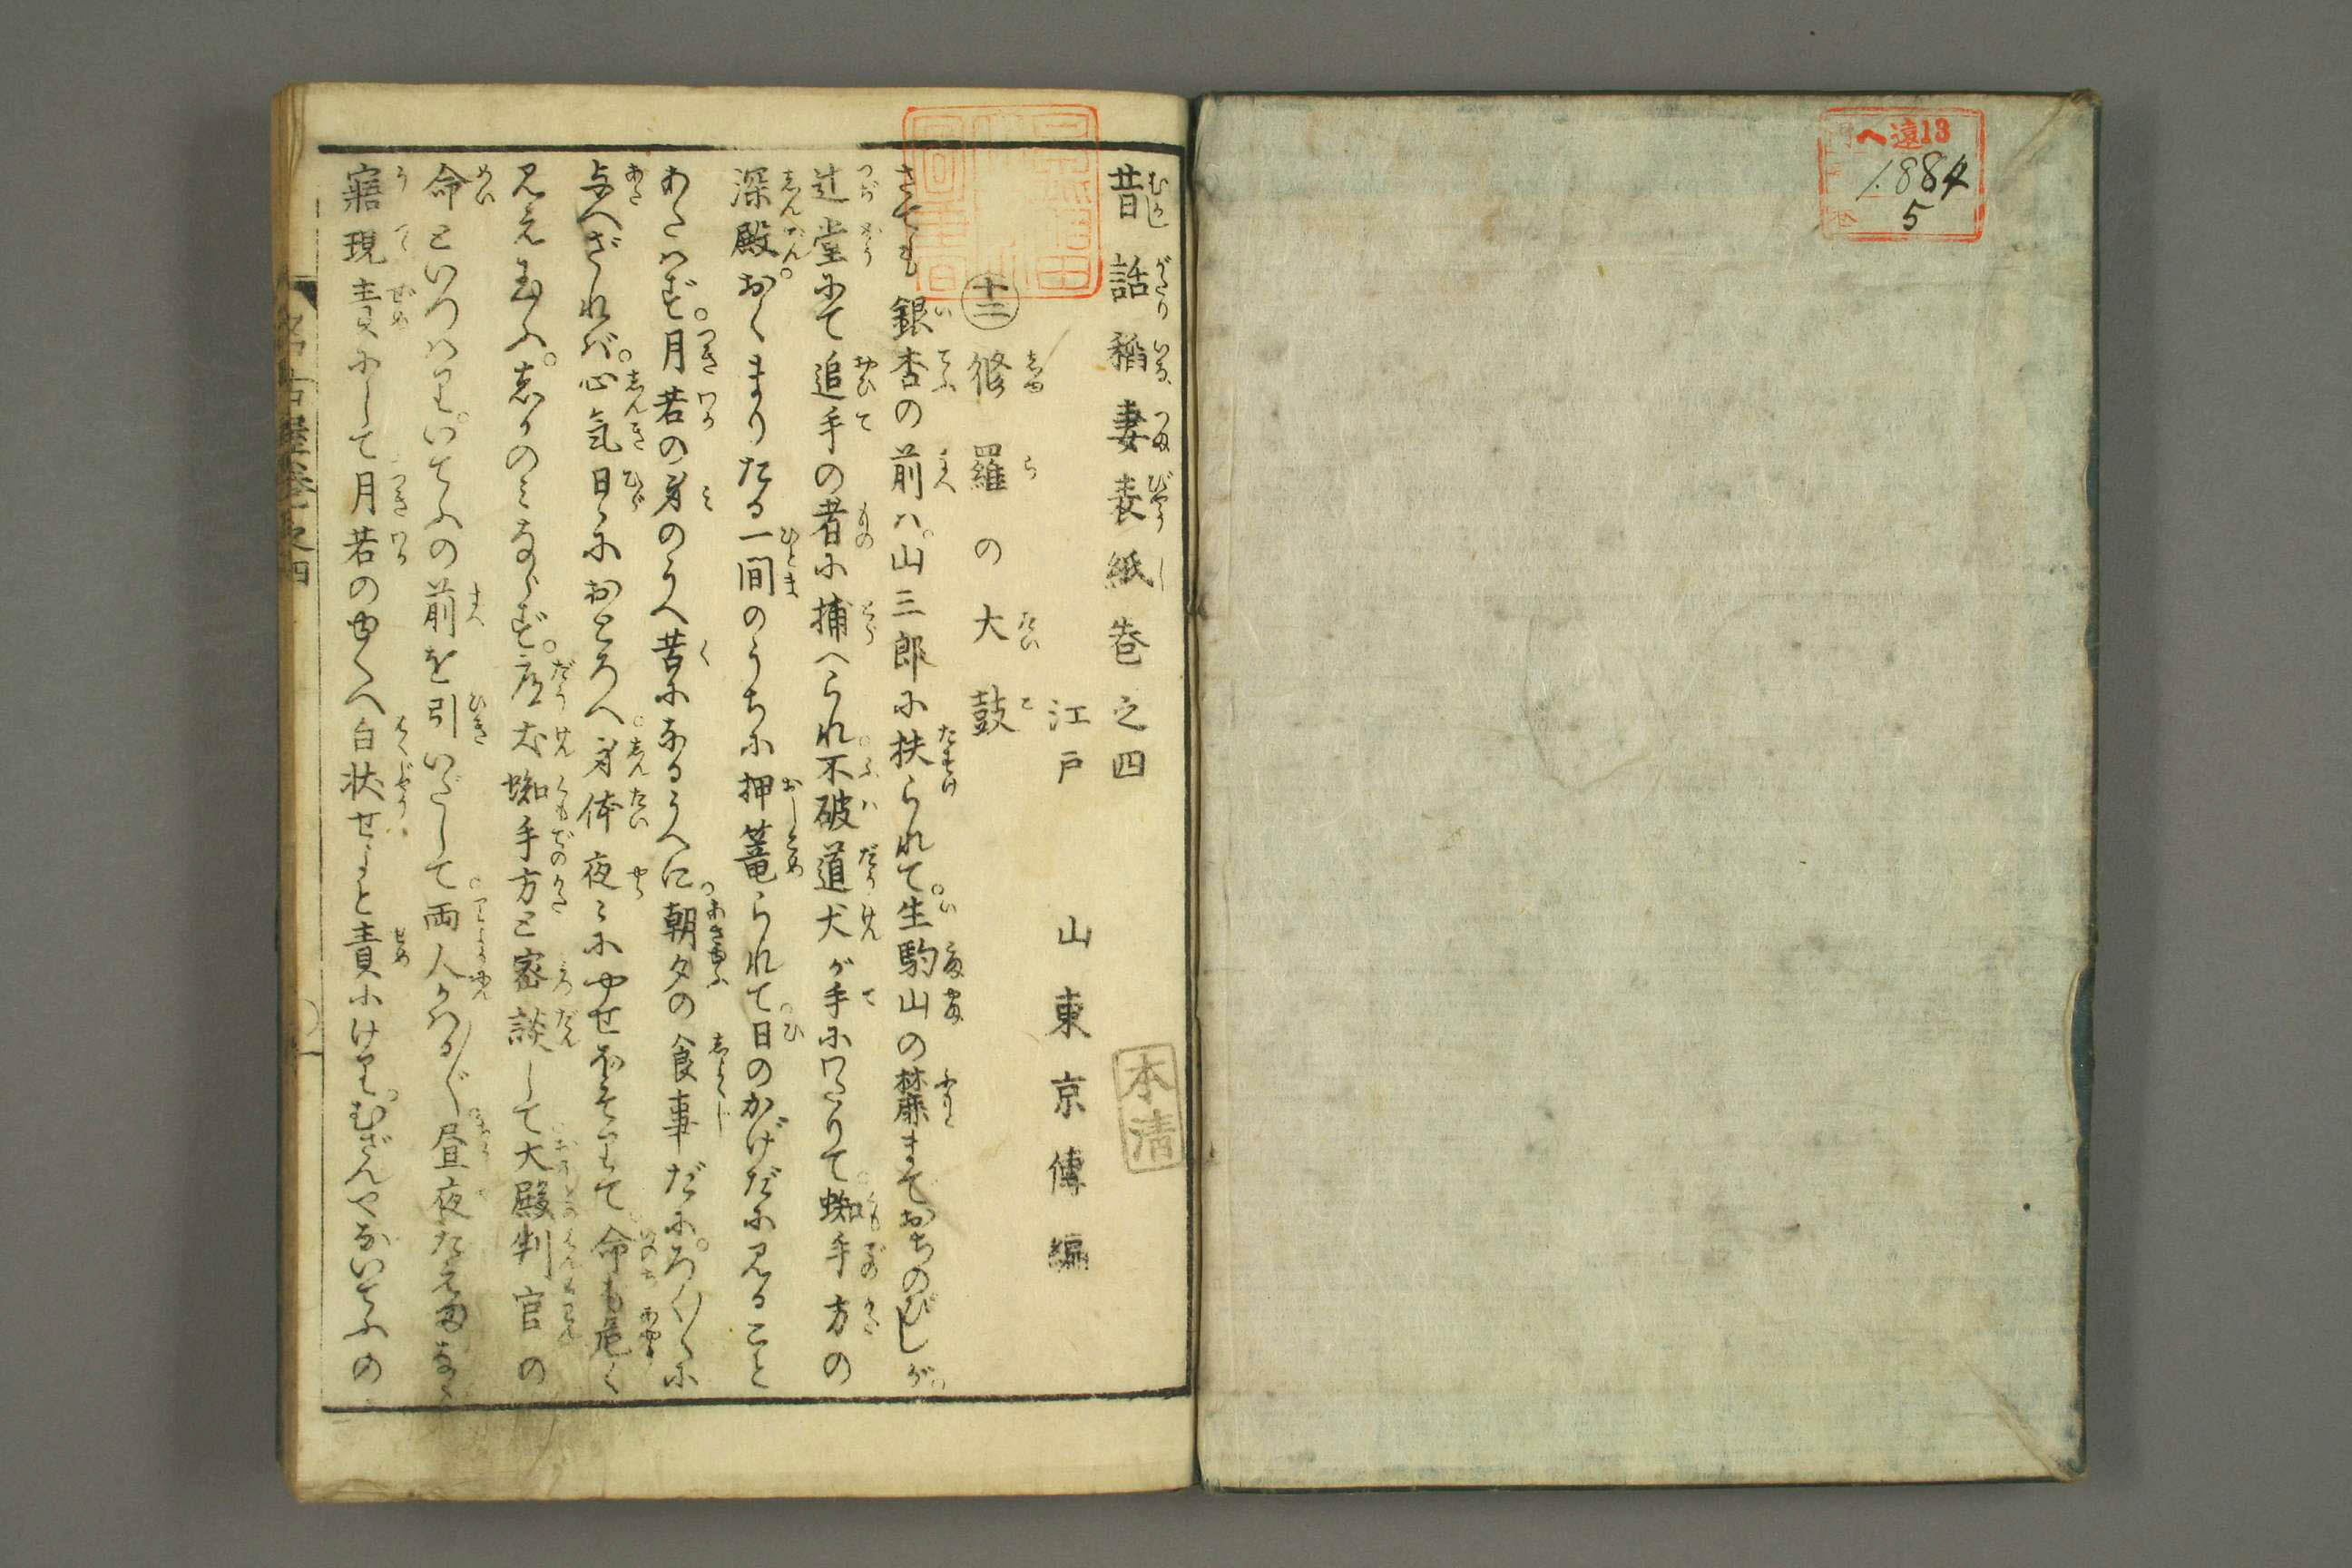 へ遠13
1884
5
昔話稲妻表紙巻之四
江戸　山東京傳編
本清
十二　修羅の大鼓
さても銀杏の前ハ。山三郎に扶られて。生駒山の麓までおちのびしが
辻堂にて追手の者に捕へられ。不破道犬が手にわたりて。蜘手方の
深殿。おくまりたる一間のうちに押篭られて。日のかげだに見ること
あたハず。月若の身のうへ苦になるうへに。朝夕の食事だに。ろく／＼に
与へざれバ。心気日ゝにおとろへ。身体夜ゝにやせほそりて。命も危く
見え給ふ。しかのみならず。道犬蜘手方と密談して。大殿判官の
命といつハり。いてふの前を引いだして。両人かハる／＼゛。昼夜たえまなく
寤現責にして月若のゆくへ白状せよと責にけり。むざんやないてふの